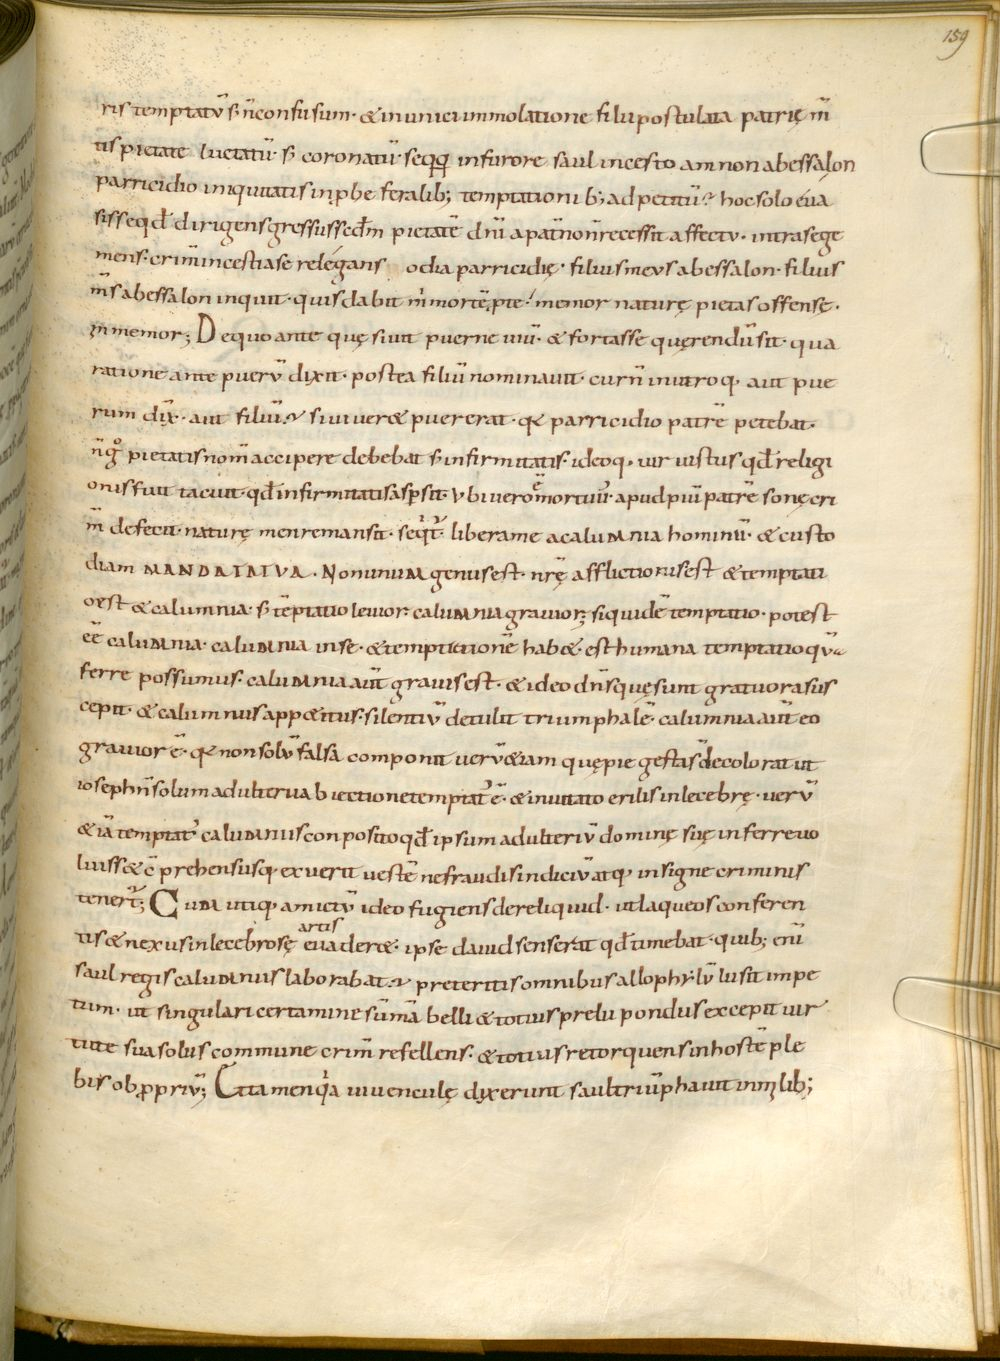 159
ris temptatū s̄ n̄ confusum · & in unici immolatione filii postulata patrię m̄
tis pietate luctatū · s̄ coronatū · seqq̄ in furore saul incesto amnon abessalon
parricidio iniquitatis inp̱be feralib; temptationib; ad petitū · hoc solo éua
sisse qđ dirigens gressus seđm pietatē dn̄i a pat̄no n̄ recessit affectu · intra sege
mens · crim̄ incesti a se relégans odia parricidię · filius meus abessalon · filius
m̄s abessalon inquit · quis dabit m̄ mortē p̱ te · memor naturę pietas offensę ·
inmemor; De quo ante quę siuit puerne uiū · & fortasse quęrendū sit · qua
ratione ante puerū dixit · postea filiū nominauit · cur n̄ in utroq · aut pue
rum dix̄ · aut filiū · si uiuer& puer erat · q& parricidio patrē petebat ·
n̄ gͦ pietatis nom̄ accipere debebat s̄ infirmitatis · ideoq · uir iustus qđ religi
onis fuit tacuit · qđ infirmitatis aspsit · Vbi uero mortuū ē · apud piū patrē sonę cri
m̄ defecit · naturę men remansit · seqt̄ · libera me a calumnia hominū · & custo
diam MANDATA TUA · Non unum genus est · nrę̄ afflictionis est & temptati
o est & calumnia · s̄ tēptatio leuior calumnia grauior; siquidē temptatio · potest
eē calumnia · calumnia in se · & temptationē hab& · est humana temptatio quā
ferre possumus · calumnia aūt grauis est · & ideo dn̄s quę sunt grauiora sus
cepit · & calumniis app&itus · silentiū detulit triumphalē · calumnia aūt eo
grauior ē · q& non solū falsā componit uerū &iam quę pie gesta s̄ decolorat ut
ioseph n̄ solum adulterii abiectione temptat' ē · & inuitato erilis inlecebrę · uerū
& iā temptat' calumniis conposito qđ ipsum adulteriū dominę suę inferre uo
luiss& cōprehensusq exuerit uestē ne fraudis indiciū atq insigne criminis
tenerēt; Cum utiq amictū ideo fugiens dereliquid · ut laqueos conferen
tis & nexus inlecebrosę artis euader& · ipse dauid senserat qđ timebat · quib; enī
saul regis calumniis laborabat · preteritis omnibus allophylū lusit impe
tum · ut singulari certamine sūmā belli & totius prelii pondus excepit uir
tute sua solus commune crim̄ refellens · & totius retorquens in hostē ple
bis obp̱priū; Attamen qa iuuenculę dixerunt saul triūphauit in mlib;